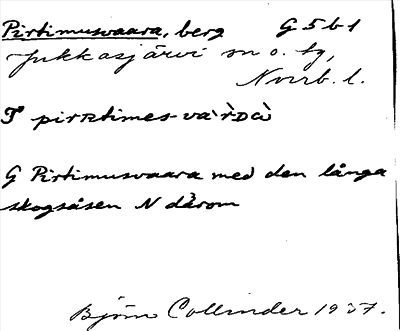 Pirtimusvaara, berg G5b1
Jukkasjärvi sn o. tg,
Norrb. l.
T pirttimes-và'ràDà
G Pirtimusvaara med den långa
skogsåsen N därom
Björn Collinder 1937.